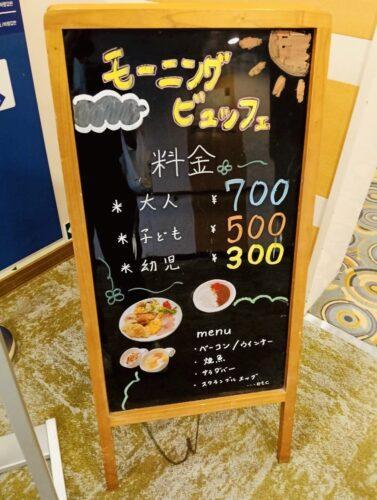 モーニング
ビュッフェ
料金
* 大人 ¥700
* 子ども ¥500
* 幼児 ¥300
menu
・ベーコン/ウインナー
・焼魚
・サラダバー
・スクランブルエッグ
...etc